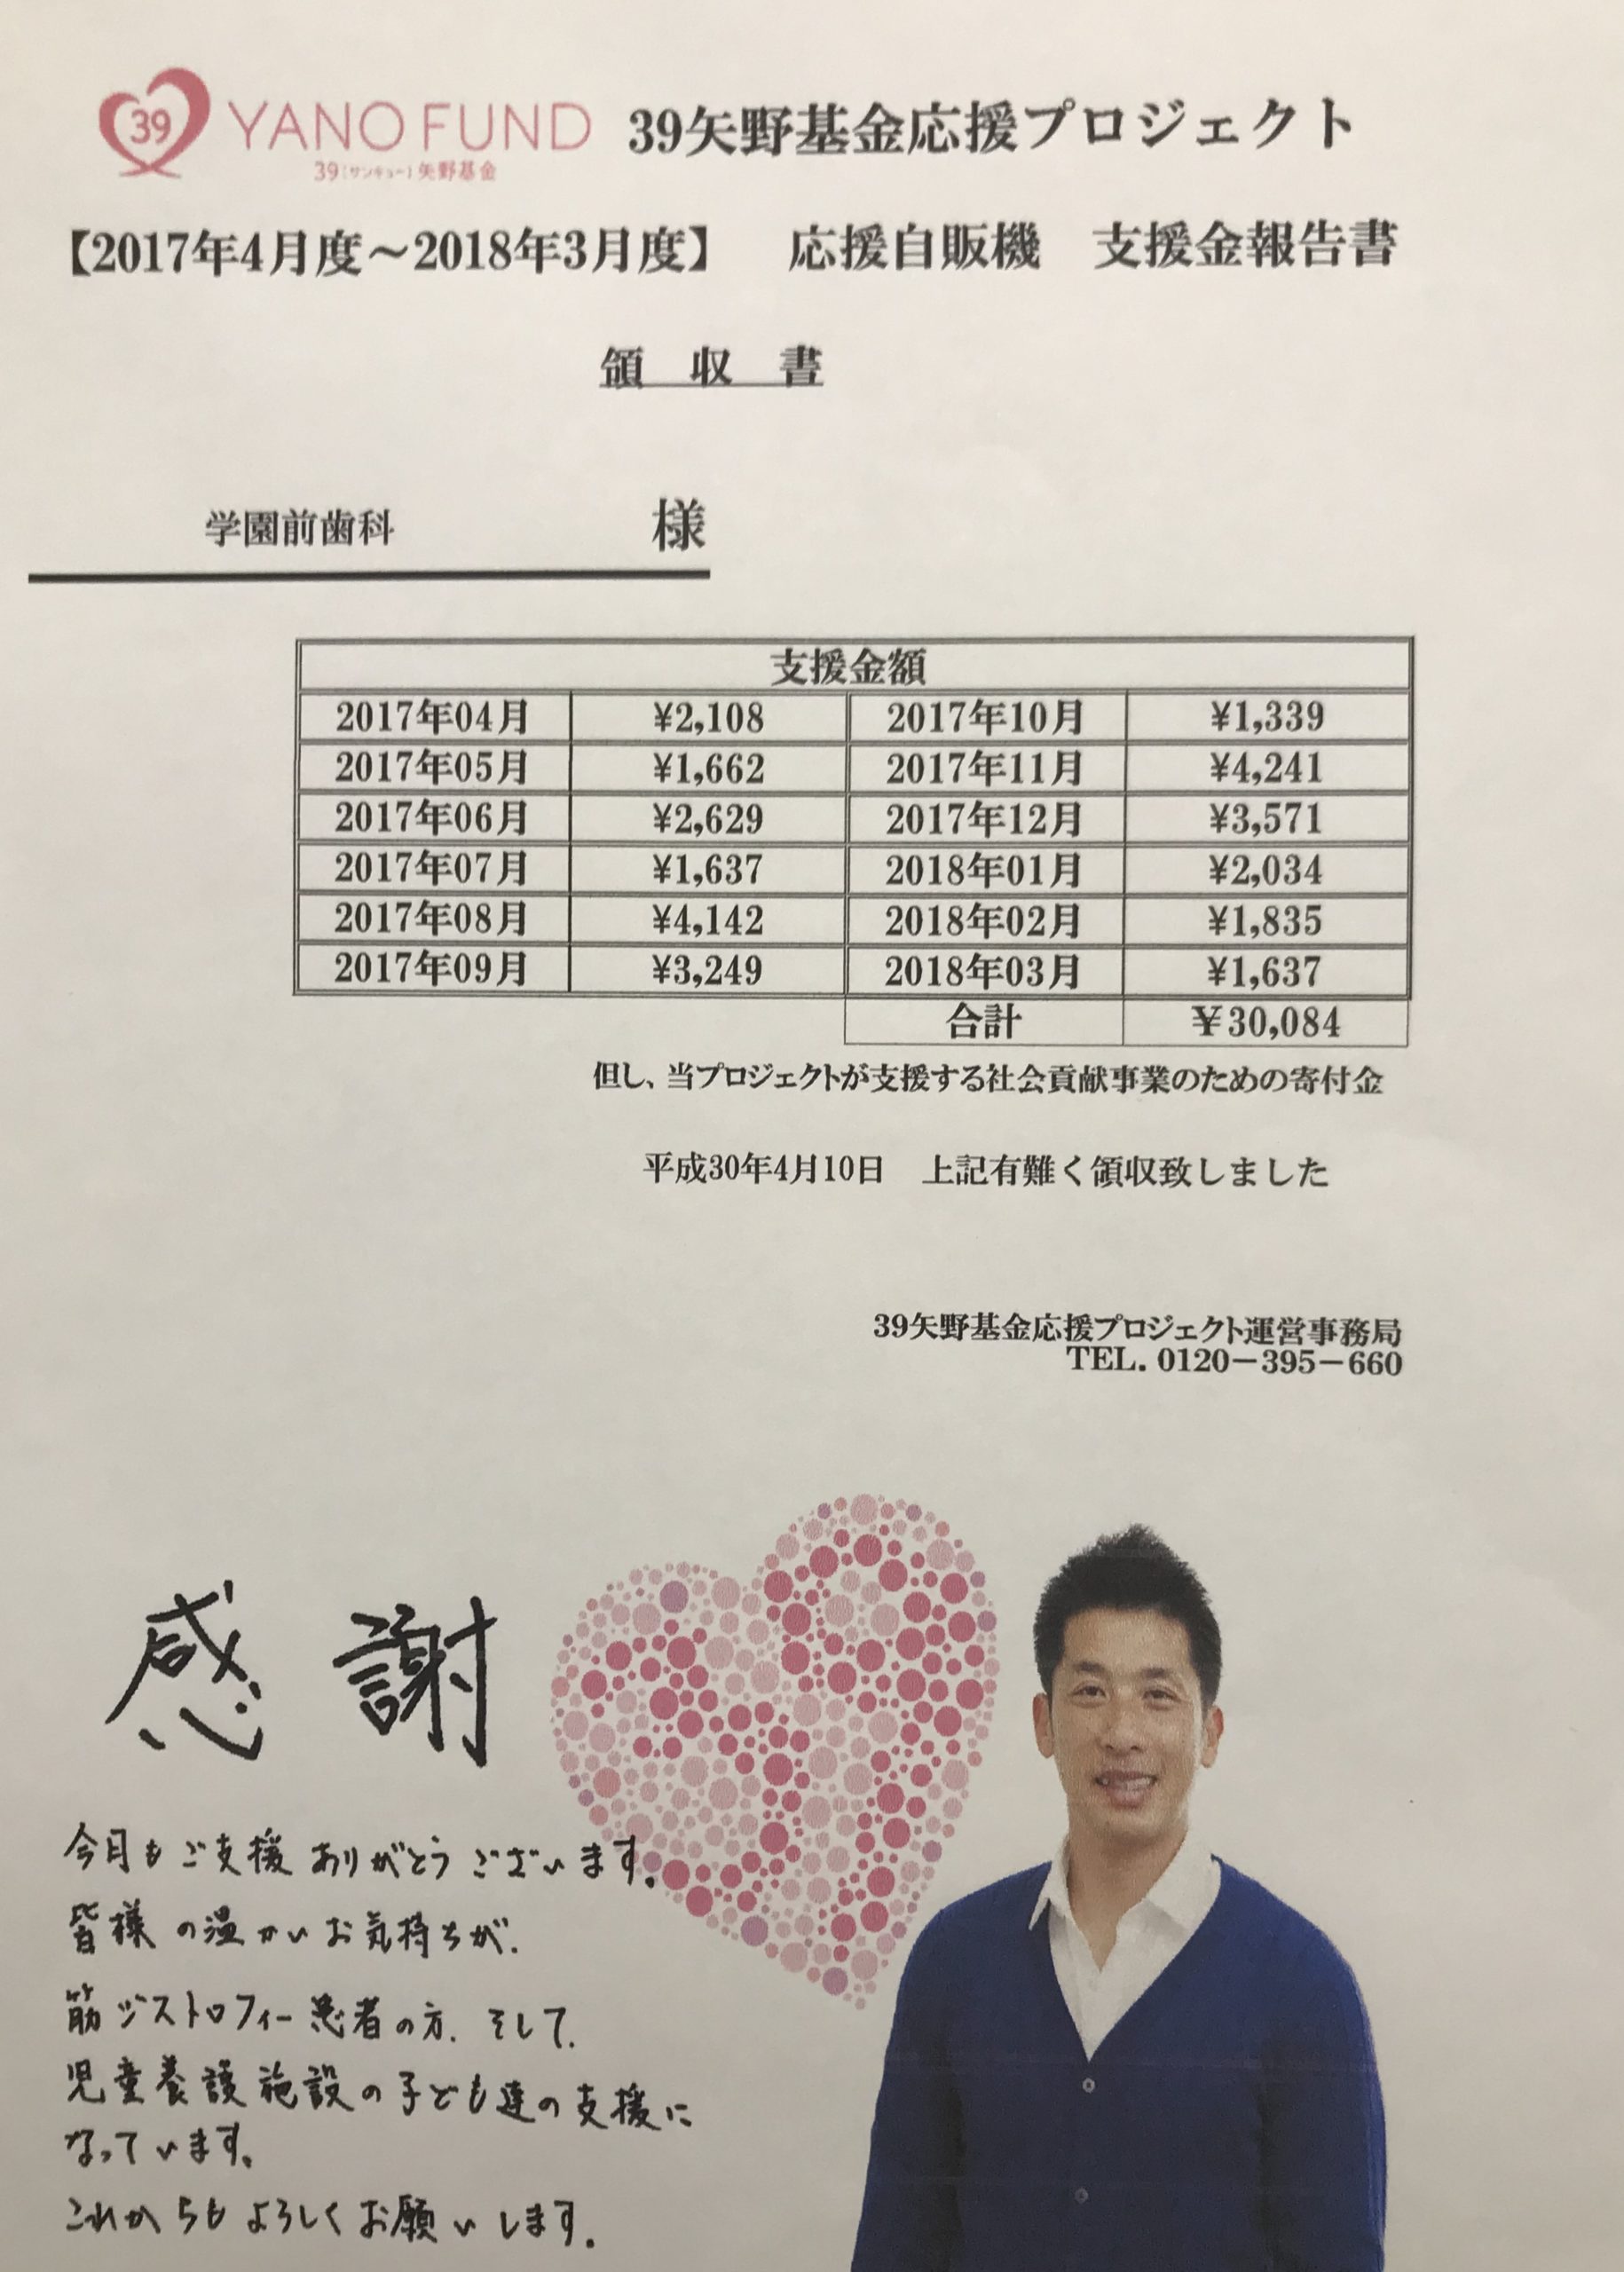 39 YANO FUND 39矢野基金応援プロジェクト
39(サンキュー)矢野基金
【2017年4月度～2018年3月度】 応援自販機 支援金報告書
領 収 書
学園前歯科 様
支援金額
2017年04月 ¥2,108 2017年10月 ¥1,339
2017年05月 ¥1,662 2017年11月 ¥4,241
2017年06月 ¥2,629 2017年12月 ¥3,571
2017年07月 ¥1,637 2018年01月 ¥2,034
2017年08月 ¥4,142 2018年02月 ¥1,835
2017年09月 ¥3,249 2018年03月 ¥1,637
合計 ¥30,084
但し、当プロジェクトが支援する社会貢献事業のための寄付金
平成30年4月10日 上記有難く領収致しました
39矢野基金応援プロジェクト運営事務局
TEL. 0120－395－660
感謝
今月もご支援ありがとうございます。
皆様の温かいお気持ちが、
筋ジストロフィー患者の方、そして、
児童養護施設の子ども達の支援に
なっています。
これからもよろしくお願いします。